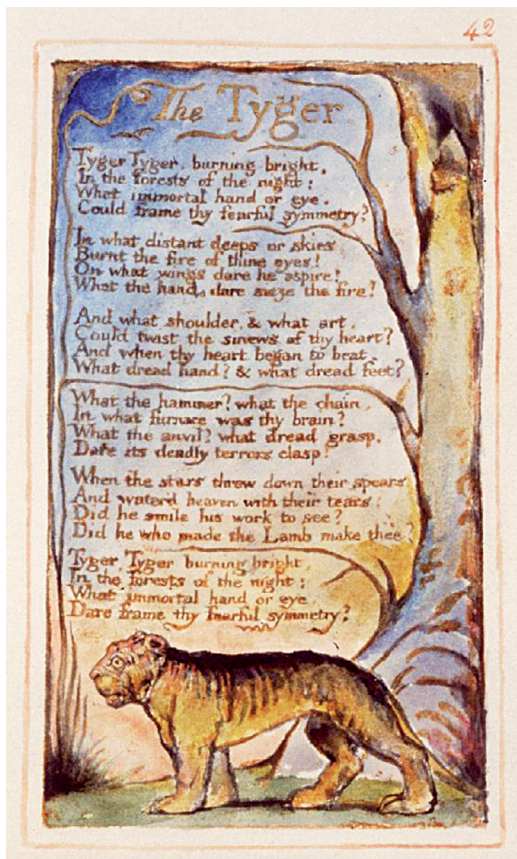 42
The Tyger
Tyger Tyger, burning bright,
In the forests of the night:
What immortal hand or eye,
Could frame thy fearful symmetry?
In what distant deeps or skies
Burnt the fire of thine eyes!
On what wings dare he aspire!
What the hand, dare sieze the fire!
And what shoulder, & what art,
Could twist the sinews of thy heart?
And when thy heart began to beat,
What dread hand? & what dread feet?
What the hammer? what the chain,
In what furnace was thy brain?
What the anvil? what dread grasp,
Dare its deadly terrors clasp!
When the stars threw down their spears
And waterd heaven with their tears:
Did he smile his work to see?
Did he who made the Lamb make thee?
Tyger, Tyger burning bright,
In the forests of the night:
What immortal hand or eye
Dare frame thy fearful symmetry?